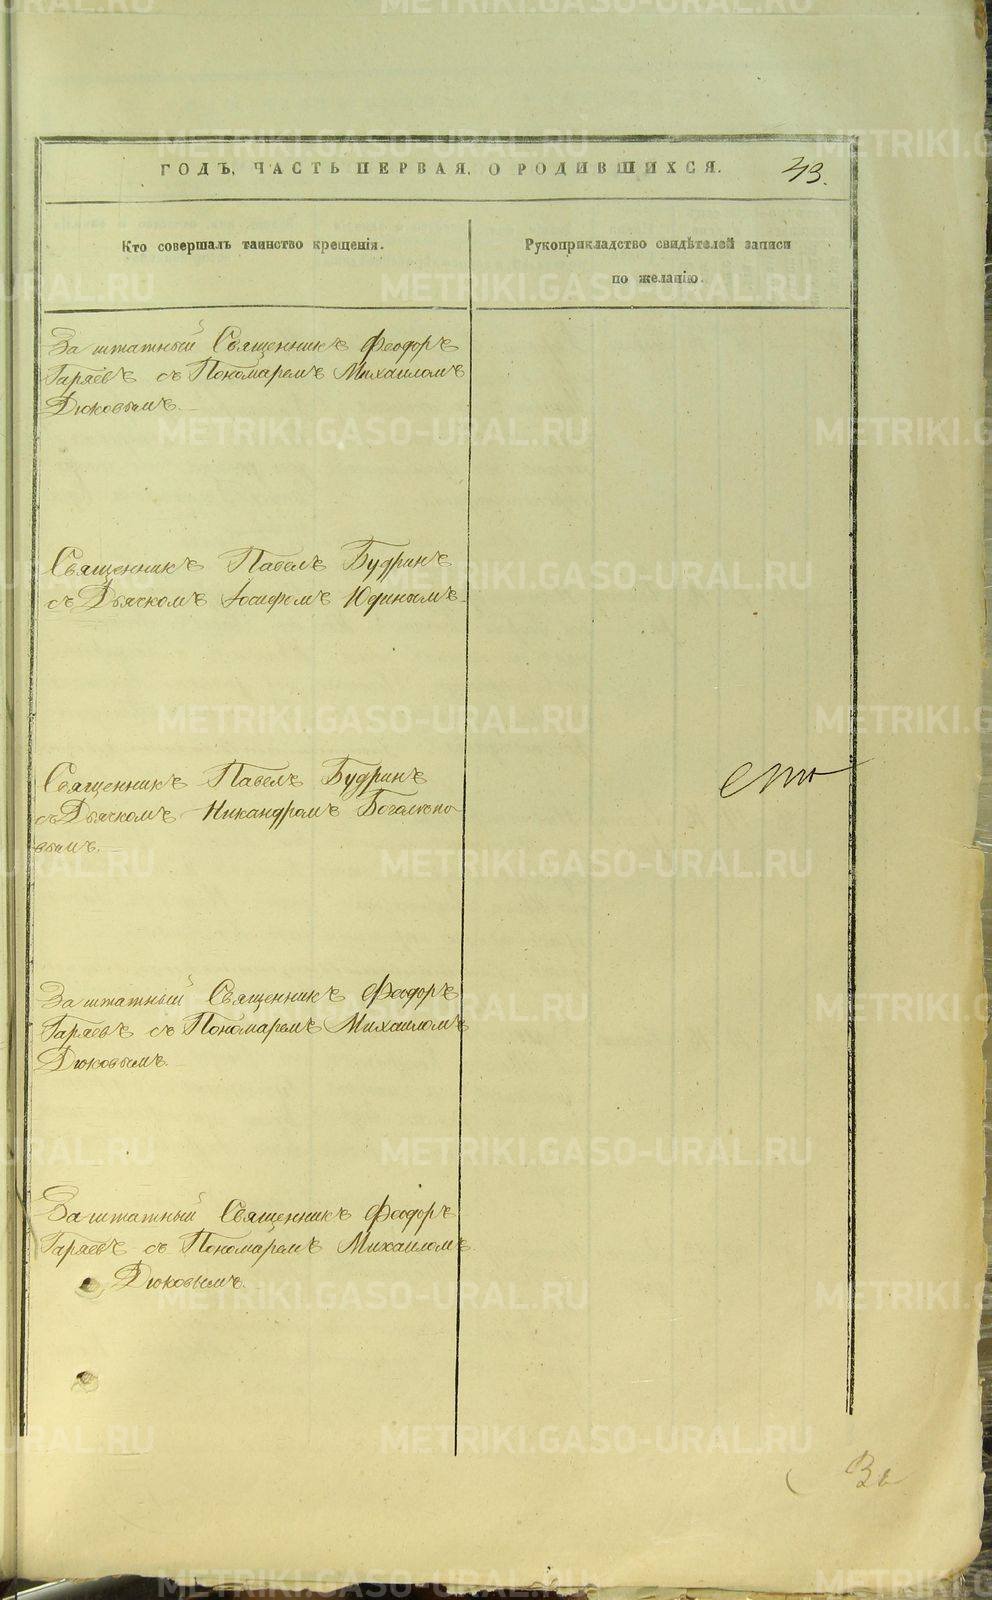 ГОДЪ, ЧАСТЬ ПЕРВАЯ, О РОДИВШИХСЯ.
43.
Кто совершалъ таинство крещенія.
Рукоприкладство свидѣтелей записи
по желанію.
Заштатный Священникъ Феодоръ
Гаряевъ съ Пономаремъ Михаиломъ
Дюковымъ.
Священникъ Павелъ Будринъ
съ Дьячкомъ Іосифомъ Юдинымъ
Священникъ Павелъ Будринъ
съ Дьячкомъ Никандромъ Боголѣпо-
вымъ.
Заштатный Священникъ Феодоръ
Гаряевъ съ Пономаремъ Михаиломъ
Дюковымъ.
Заштатный Священникъ Феодоръ
Гаряевъ съ Пономаремъ Михаиломъ
Дюковымъ.
METRIKI.GASO-URAL.RU